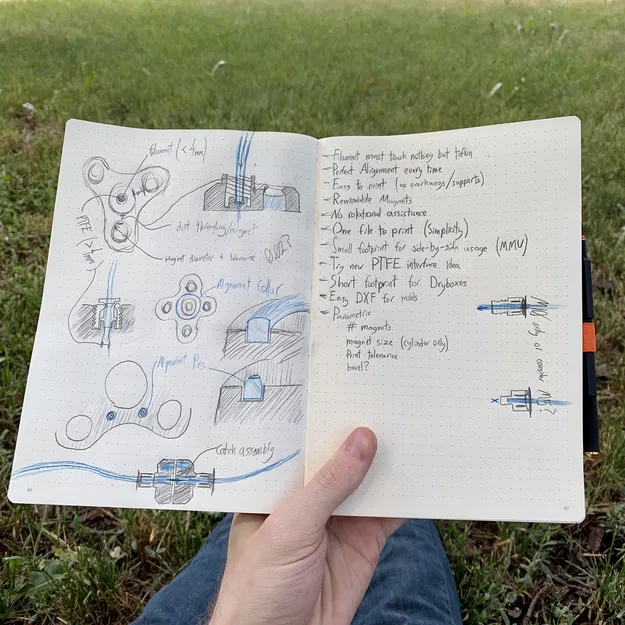 filament (<4mm)
PTFE >1mm
dist threading/magnet
magnet diameter + tolerance 0.02?
Alignment Collar
Alignment Pins
Catch assembly
46
- Filament must touch nothing but teflon
- Perfect Alignment every time
- Easy to print (no overhangs/supports)
- Removable Magnets
- No rotational assistance
- One file to print (Simplicity)
- Small footprint for side-by-side usage (MMU)
- Try new PTFE interface idea
- Short footprint for Dryboxes
- Easy DXF for mods
- Parametric
# magnets
magnet size (cylinder only)
Print tolerance
bevel?
only or consider M5?
47